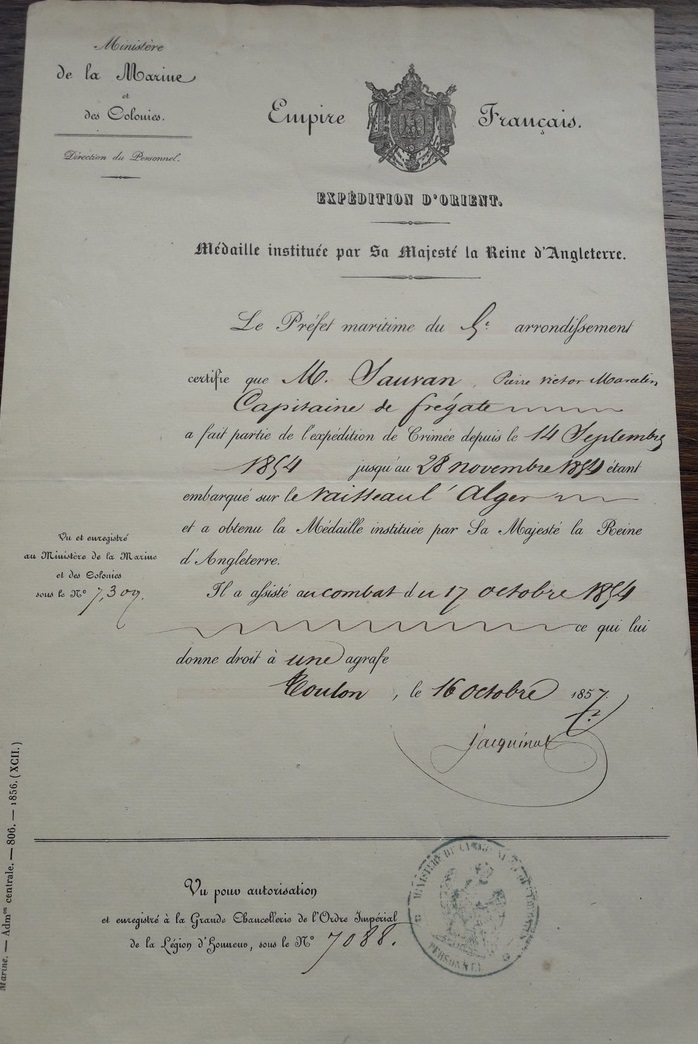 Ministère
de la Marine
et
des Colonies.
Direction du Personnel.
Empire Français.
EXPÉDITION D'ORIENT.
Médaille instituée par Sa Majesté la Reine d'Angleterre.
Le Préfet maritime du 5e arrondissement
certifie que M. Sauvan, Pierre Victor Marcelin,
Capitaine de frégate
a fait partie de l'expédition de Crimée depuis le 14 Septembre
1854 jusqu'au 28 novembre 1854 étant
embarqué sur le Vaisseau l'Alger
et a obtenu la Médaille instituée par Sa Majesté la Reine
d'Angleterre.
Il a assisté au combat du 17 octobre 1854
ce qui lui
donne droit à une agrafe
Toulon, le 16 octobre 1857.
Jacquinot
Vu et enregistré
au Ministère de la Marine
et des Colonies
sous le No 7,309.
Marine. — Admon centrale. — 806. — 1856. (XCII.)
Vu pour autorisation
et enregistré à la Grande Chancellerie de l'Ordre Impérial
de la Légion d'Honneur, sous le No 7088.
MINISTÈRE DE LA MARINE
PERSONNEL